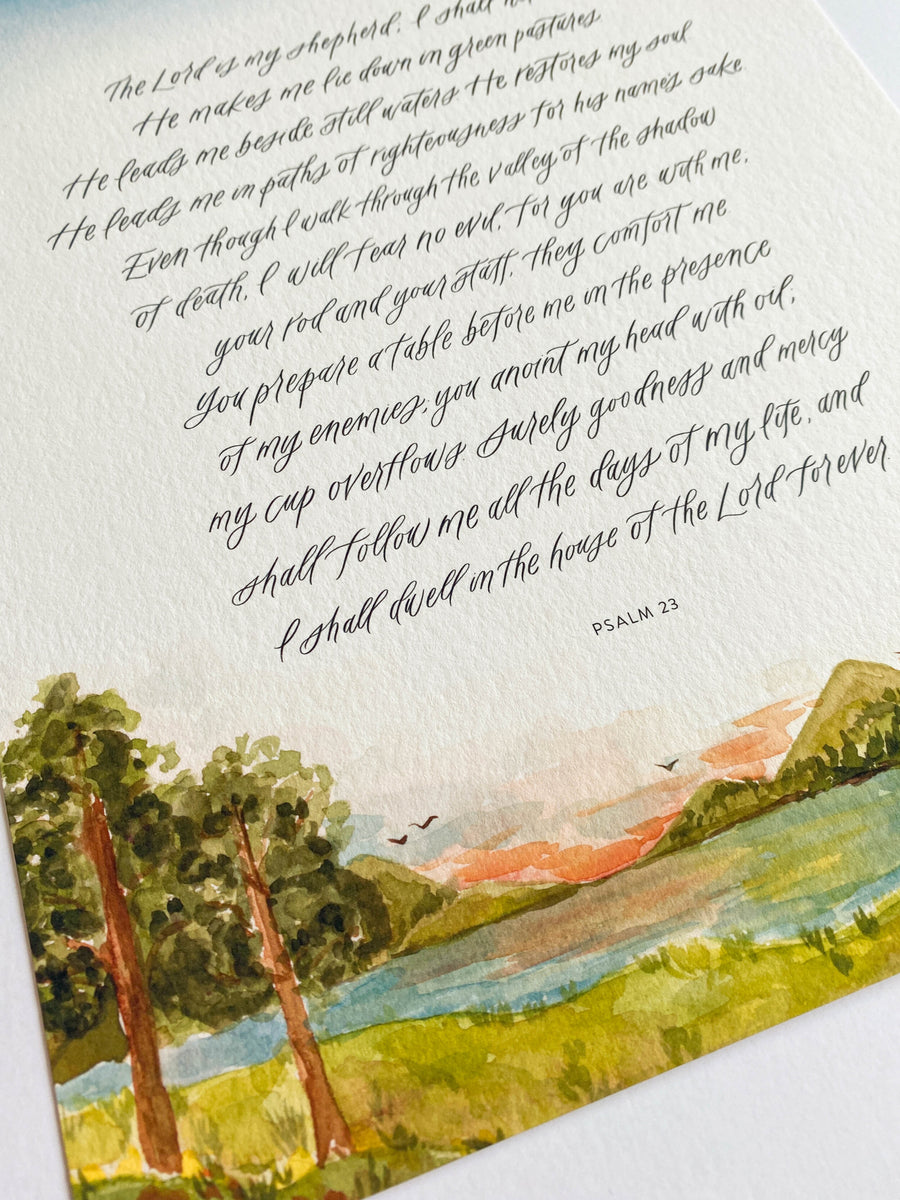 The Lord is my shepherd; I shall
He makes me lie down in green pastures.
He leads me beside still waters. He restores my soul
He leads me in paths of righteousness for his name's sake.
Even though I walk through the valley of the shadow
of death, I will fear no evil, for you are with me;
your rod and your staff, they comfort me
You prepare a table before me in the presence
of my enemies; you anoint my head with oil;
my cup overflows. Surely goodness and mercy
shall follow me all the days of my life, and
I shall dwell in the house of the Lord forever.
PSALM 23